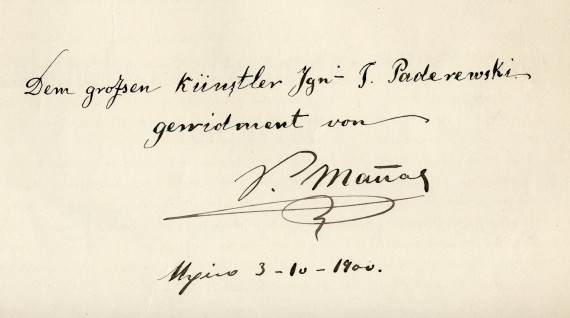 Dem großen Künstler Ign- J. Paderewski
gewidment von
V. Mañas
Mejico 3-10-1900.